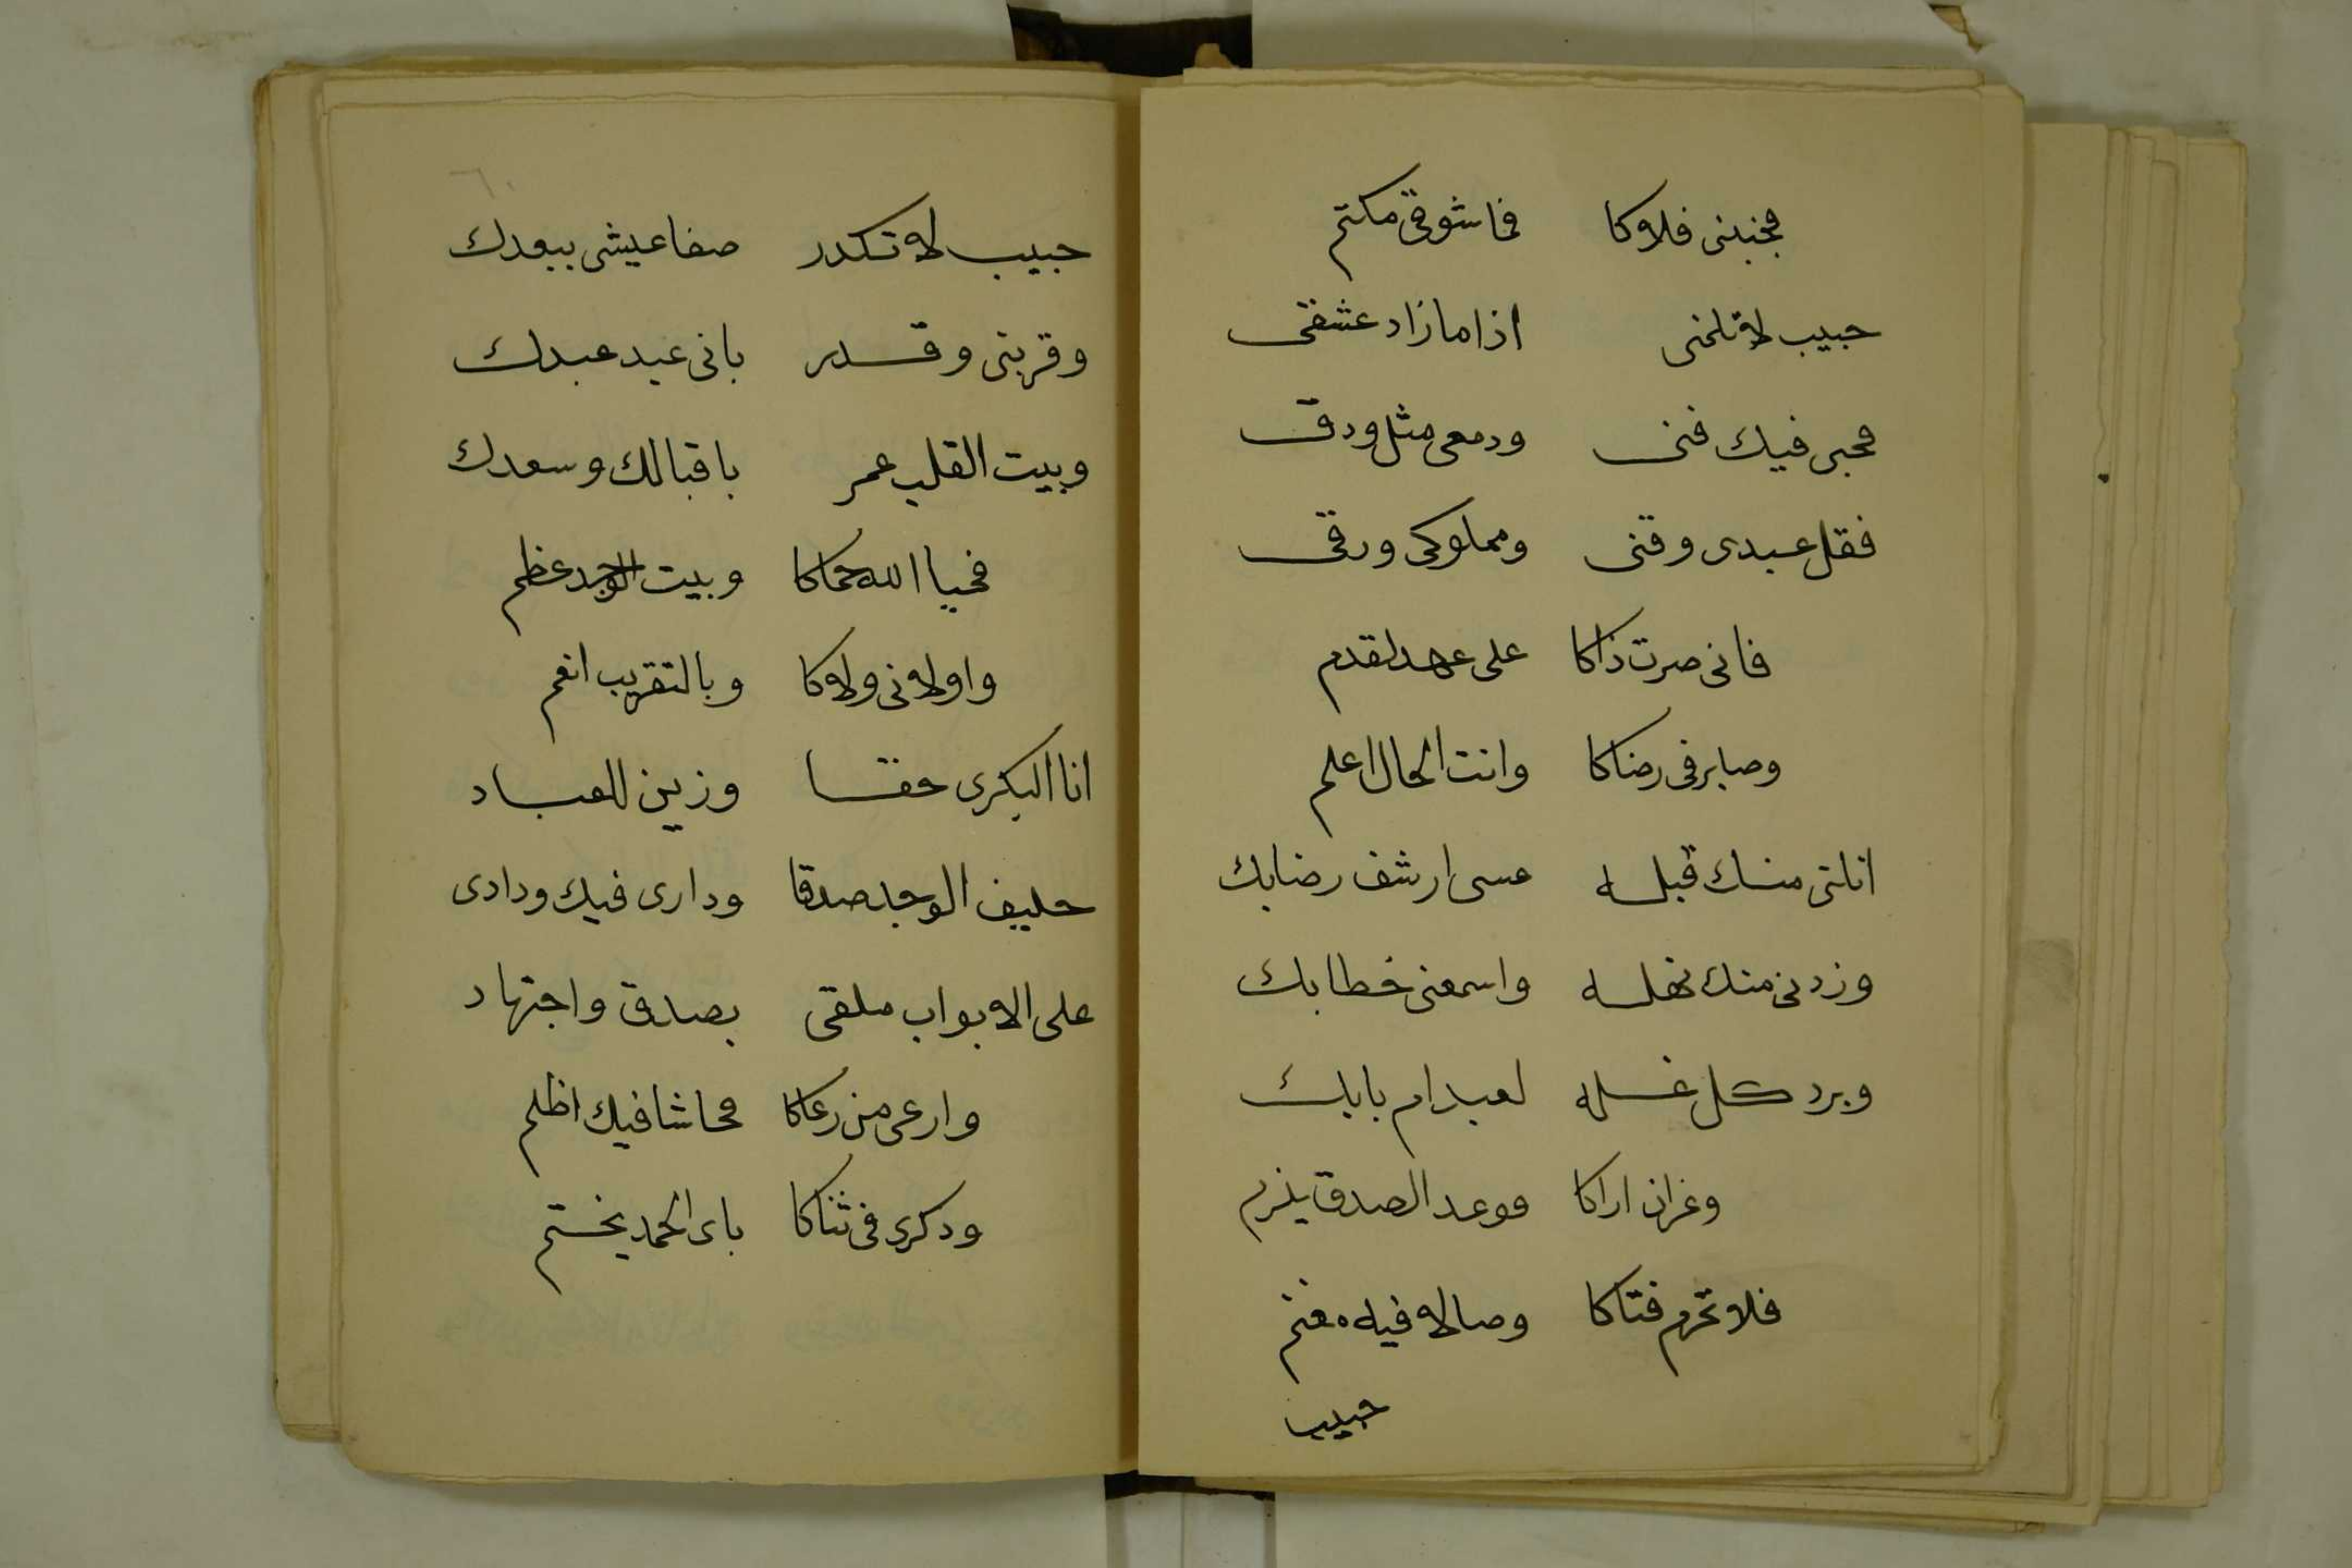 فجبنى فلاوكا فما شوقى مكتم
حبيب لا تلمنى اذا ما زاد عشقى
فحبى فيك فنى ودمعى مثل ودق
فقل عبدى وقنى ومملوكى ورقى
فانى صرت ذاكا على عهد لقدم
وصابر فى رضاكا وانت الحال اعلم
انلتى منك قبله عسى ارشف رضابك
وزدنى منك نهله واسمعنى خطابك
وبرد كل غله لعبد ام بابك
وغران اراكا فوعد الصدق يلزم
فلا تحرم فتاكا وصالا فيه مغنم
حبيب
٦٠
حبيب لا تكدر صفا عيشى ببعدك
وقربنى وقدر بانى عبد عبدك
وبيت القلب عمر باقبالك وسعدك
فحيا الله حماكا وبيت الوجد عظم
واولانى ولاكا وبالتقريب انعم
انا البكرى حقا وزين للعباد
حليف الوجد صدقا ودارى فيك ودادى
على الابواب ملقى بصدق واجتهاد
وارعى من رعاكا فحاشا فيك اظلم
ودكرى فى ثناكا باى الحمد يختم